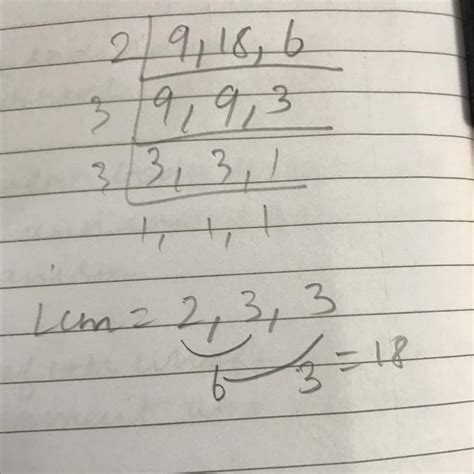 2 | 9, 18, 6
3 | 9, 9, 3
3 | 3, 3, 1
1, 1, 1
Lcm = 2, 3, 3
6 3 = 18